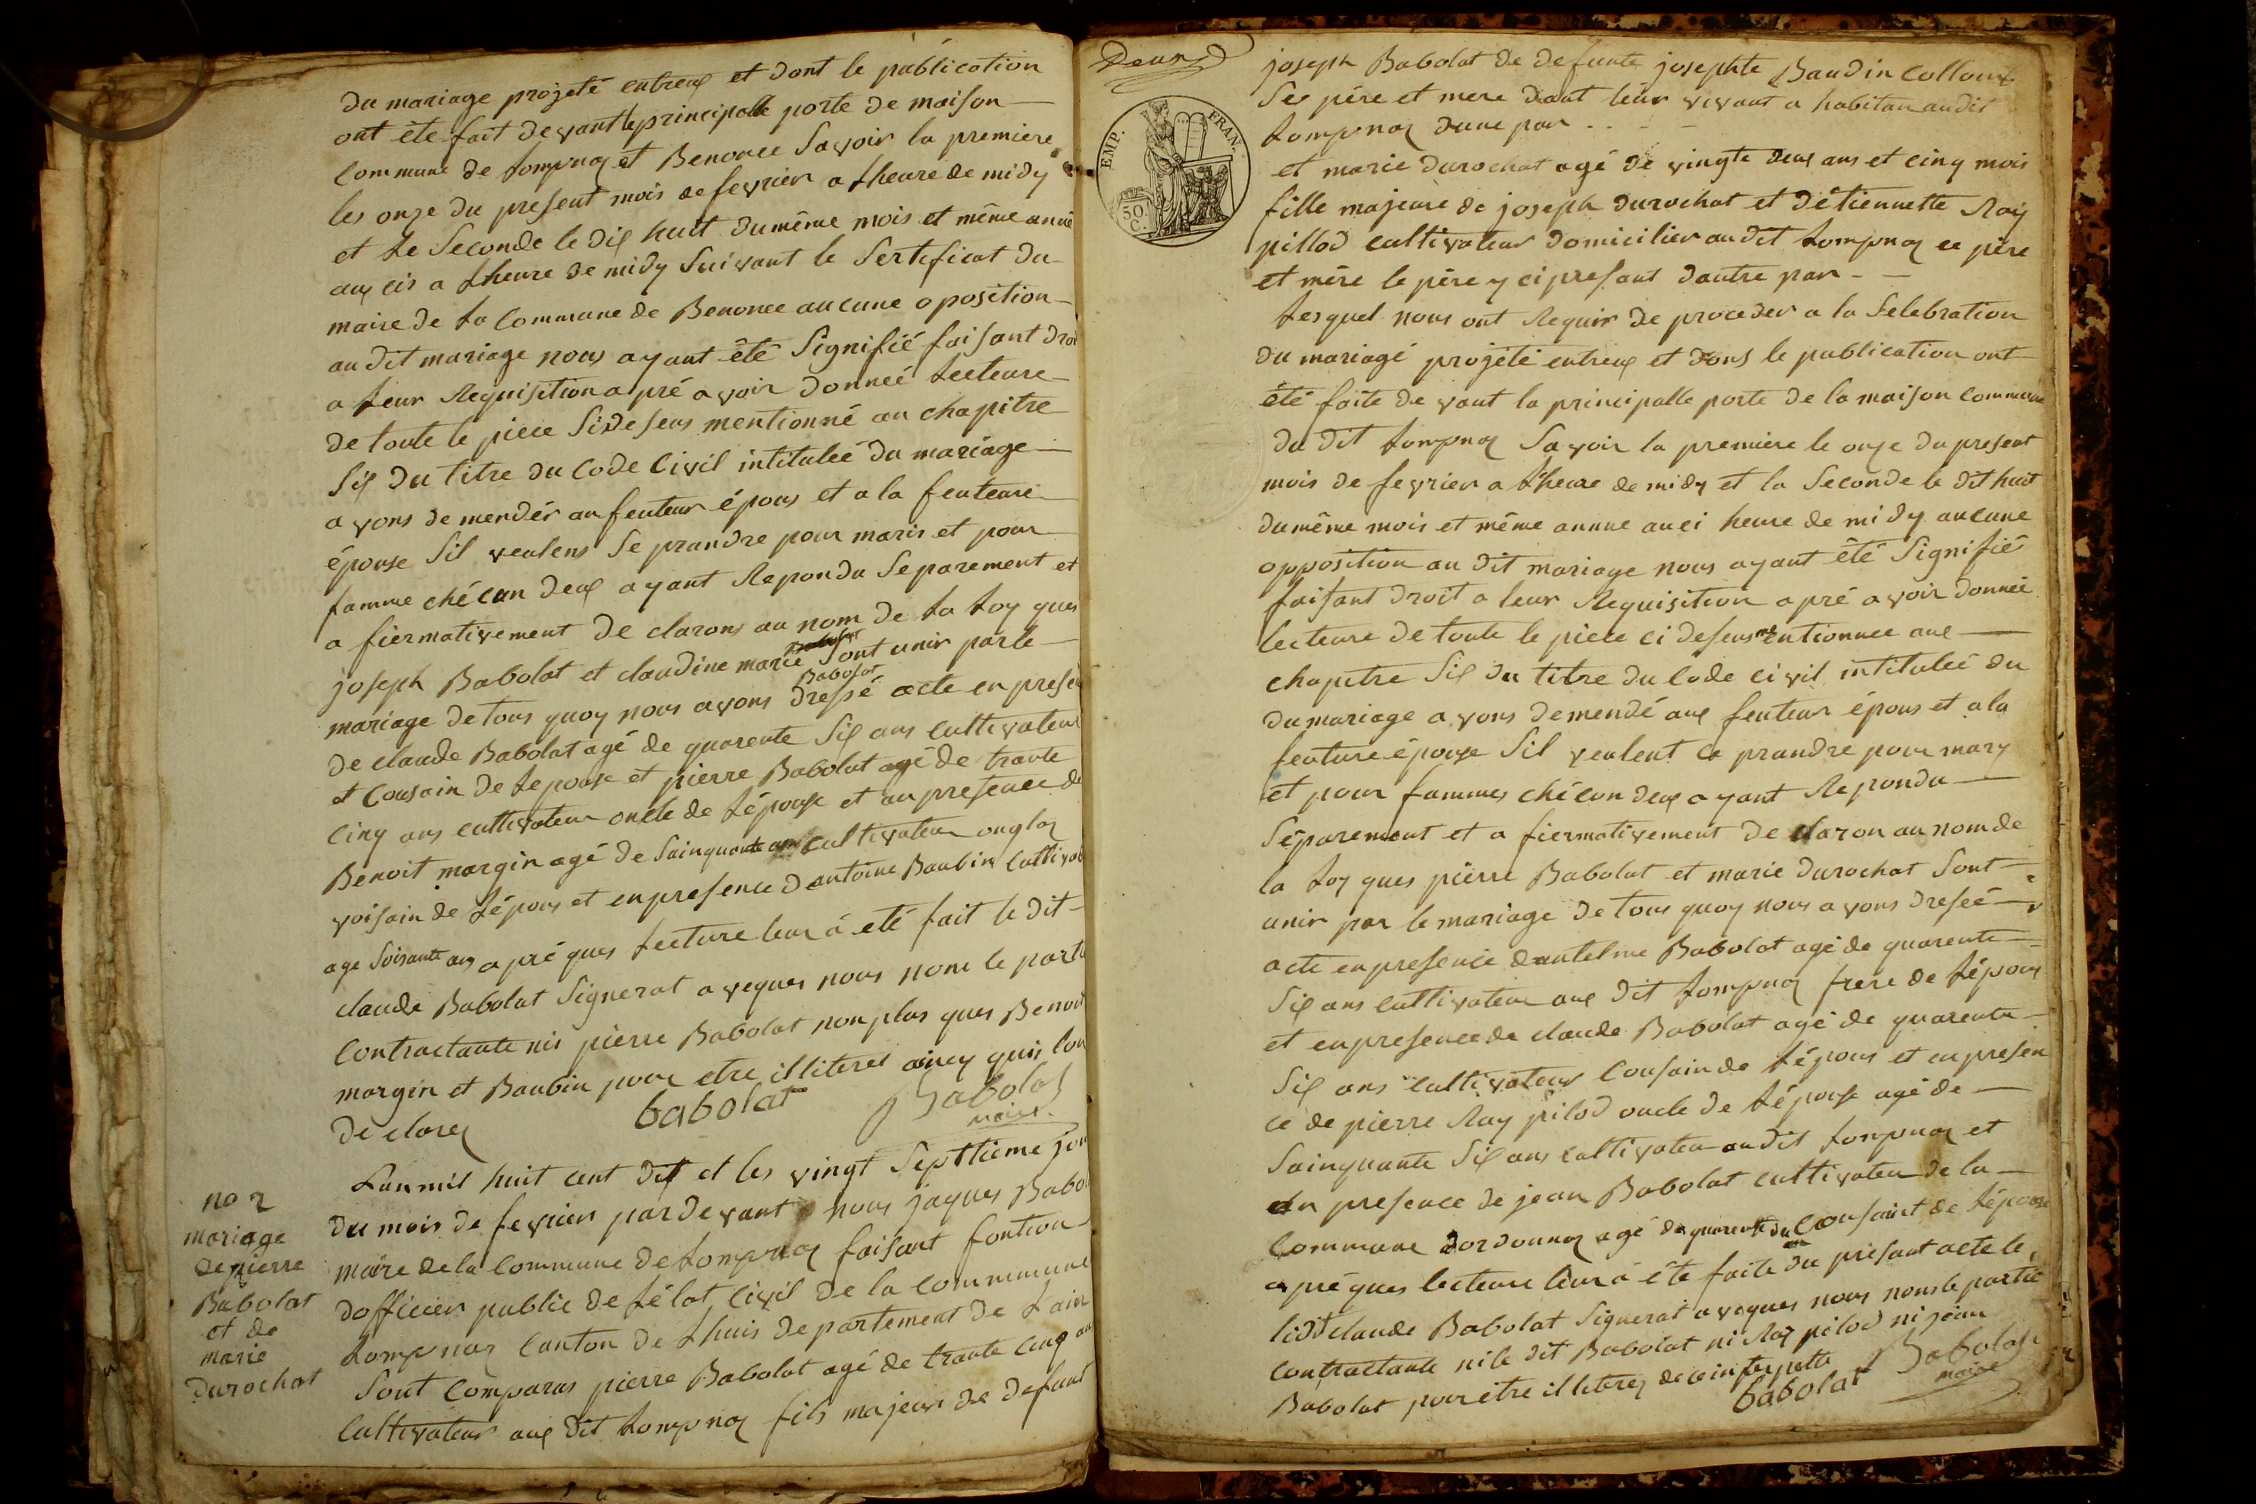 du mariage projeté entreux et dont le publication
ont ête fait devant le principalle porte de maison
Commune de Lompnaz et Benonce Savoir la premiere
les onze du present mois de fevrier a Lheure de midy
et Le Seconde le dix huit du même mois et même anné
aux cis a Lheure de midy Suivant le Sertificat du
maire de La Commune de Benonce aucune oposition
au dit mariage nous ayant êté Signifié faisant droi
a Leur Requisition apré avoir donneé Lecteure
de toute le piece Si deseus mentionné au chapitre
Six du titre du Code Civil intituleé du mariage
avons demendér au feuteur épous et a la feuteure
épouse Sil veulens Se prandre pour maris et pour
famme chécun deux ayant Repondu Separement et
a fiermativement declarons au nom de La Loy ques
joseph Babolat et claudine marie Babolat Sont unir par le
mariage de tous quoy nous avons dressé acte en prese
de claude Babolat agé de quarente Six ans Cultivateur
et Cousain de Lepouse et pierre Babolat agé de trante
Cinq ans cultivateur oncle de Lépouse et au presence de
Benoit margin agé de Sainquante ans Cultivateur onglas
voisain de Lépous et en presence dantoine Baubin Cultivat
age Soisante ans apré ques Lecture leur á eté fait le dit
claude Babolat Signerat aveques nous nom le parti
Contractante nis pierre Babolat non plus ques Benoit
margin et Baubin pour etre illiteres aincy quis lon
declarez
babolat
JBabolat
maire
no 2
mariage
de pierre
Babolat
et de
marie
durochat
Lan mil huit cent dix et les vingt Septtieme jou
du mois de fevrier pardevant nous jaques Babol
maire de la Commune de Lompnaz faisant fontion
dofficier public de Létat Civil de la Commune
Lompnaz Canton de Lhuis departement de Lain
Sont Comparus pierre Babolat agé de trante Cinq an
Cultivateur aux dit Lompnaz fils majeur de defunt
Deux
EMP. FRAN.
50 C.
joseph Babolat de defunte josephte Baudin Colloux
Ses pére et mere duant leur vivant a habitan au dit
Lompnaz dune par
et marie durochat agé de vingte deux ans et cinq mois
fille majeure de joseph durochat et détiennette Roy
pillod cultivateur domicilier au dit Lompnaz ce pére
et mére le pére y ci presant dautre par
Lesquel nous ont Requir de proceder a la Selebration
du mariagé projété entreux et dons le publication ont
été faite devant la principalle porte de la maison Commune
du dit Lompnaz Savoir la premiere le onze du present
mois de fevrier a Lheure de midy et la Seconde le dit huit
du même mois et même annue auci heure de midy aucune
opposition au dit mariage nous ayant êté Signifié
faisant droit a leur Requisition apré avoir donneé
lecteure de toute le piece ci deseus mentionnee aux
chapitre Six du titre du Code civil intituleé du
du mariage avons demendé aux feuteur épous et a la
feuture épouze Sil veulent ce prandre pour mary
et pour fammes chécun deux ayant Repondu
Séparement et a fiermativement declaron au nom de
la Loy ques pierre Babolat et marie durochat Sont
unir par le mariage de tous quoy nous avons dreseé
acte en presence dantelme Babolat agé de quarente
Six ans cultivateur aux dit Lompnaz frere de Lépous
et en presence de claude Babolat agé de quarente
Six ans cultivateur Cousain de Lépous et en presen
ce de pierre Ray pilod oncle de Lépouse agé de
Sainquante Six ans Cultivateu au dit Lompnaz et
en presence de jean Babolat cultivateu de la
Commune dordonnaz agé de quarente Cousaint de Lépouse
apré ques lecteure leur á éte faite du presant acte le
lidt claude Babolat Signerat aveques nous nons le partie
contractante ni le dit Babolat ni Ray pilod ni jean
Babolat pour être illiterez de ce interpelle
babolat
JBabolat
maire